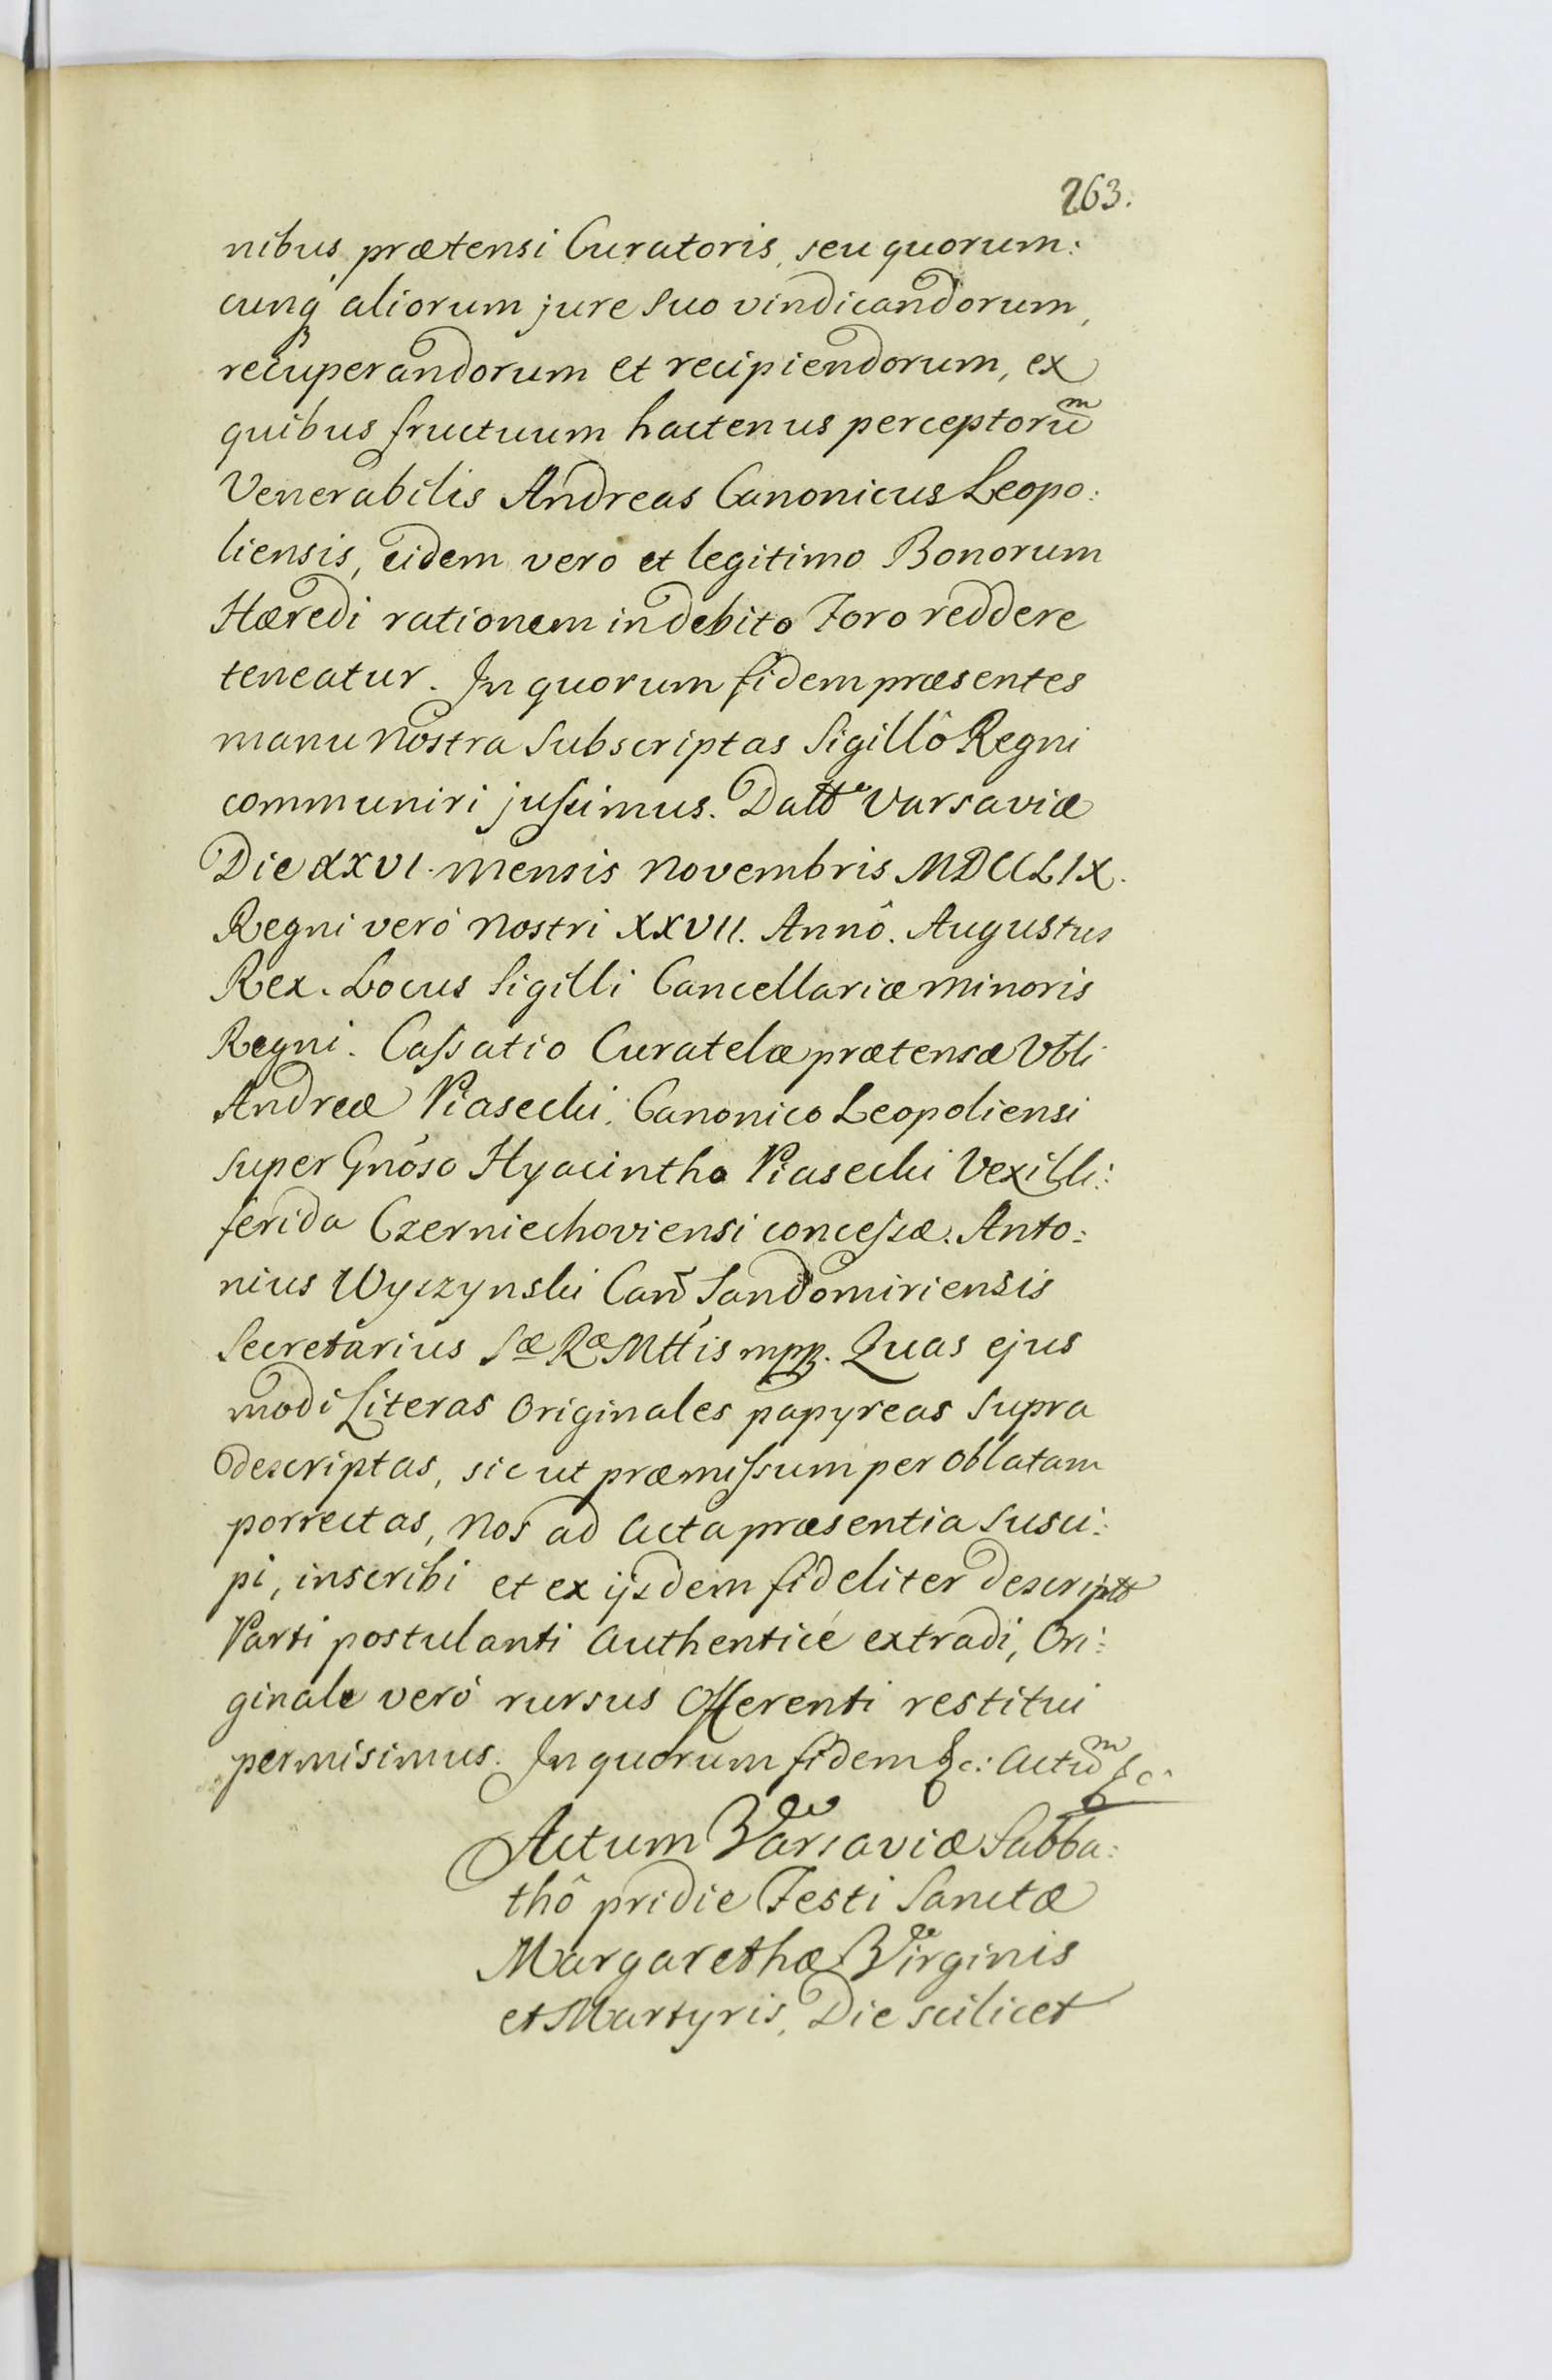 263.
nibus prætensi Curatoris, seu quorum:
cunq́ aliorum jure suo vindicandorum,
recuperandorum et recipiendorum, ex
quibus fructuum hactenus perceptorũm
Venerabilis Andreas Canonicus Leopo:
liensis, eidem vero et legitimo Bonorum
Hæredi rationem in debito Foro reddere
teneatur. In quorum fidem præsentes
manu Nostra Subscriptas Sigillô Regni
communiri jussimus. Datt Varsaviæ
Die XXVI. Mensis Novembris MDCCLIX.
Regni verò Nostri XXVII. Annô. Augustus
Rex. Locus Sigilli Cancellariæ Minoris
Regni. Cassatio Curatelæ prætensæ Vbli
Andreæ Piasecki, Canonico Leopoliensi
super Gnôso Hyacintho Piasecki Vexilli:
ferida Czerniechoviensi concessæ. Anto:
nius Wyczynski Can̄ Sandomiriensis
Secretarius Sæ Ræ Mttis mpp. Quas ejus
modi Literas Originales papyreas supra
descriptas, sicut præmissum per Oblatam
porrectas, Nos ad Acta præsentia susci:
pi, inscribi et ex ijsdem fideliter descriptt
Parti postulanti Authenticè extradi, Ori:
ginale verò rursus Offerenti restitui
permisimus. In quorum fidem &c: Actũm &c
Actum Varsaviæ Sabba:
thô pridie Festi Sanctæ
Margarethæ Virginis
et Martyris, Die scilicet